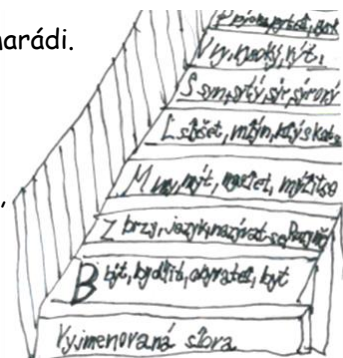 arádi.
V vy, vysoký, výt.
S syn, sytý, sýr, syrový
L slyšet, mlýn, blýskat se
M my, mýt, myslet, mýlit se
Z brzy, jazyk, nazývat se, Ruzyně
B být, bydlit, obyvatel, byt
Vyjmenovaná slova